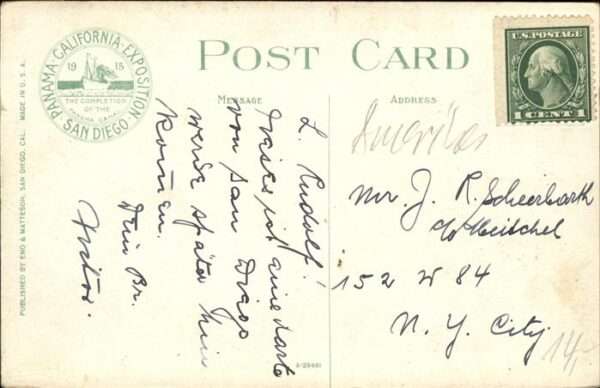 PANAMA-CALIFORNIA-EXPOSITION
1915
THE COMPLETION
OF THE
PANAMA CANAL
SAN DIEGO
POST CARD
U.S. POSTAGE
1 CENT 1
MESSAGE
ADDRESS
L. Rudolf!
Dieses ist eine Karte
von San Diego
werde später hin
kommen.
Dein Br.
Mr. J. R. Scheerbarth
c/o Meitschel
152 W 84
N. Y. City
14,-
PUBLISHED BY ENO & MATTESON, SAN DIEGO, CAL. MADE IN U.S.A.